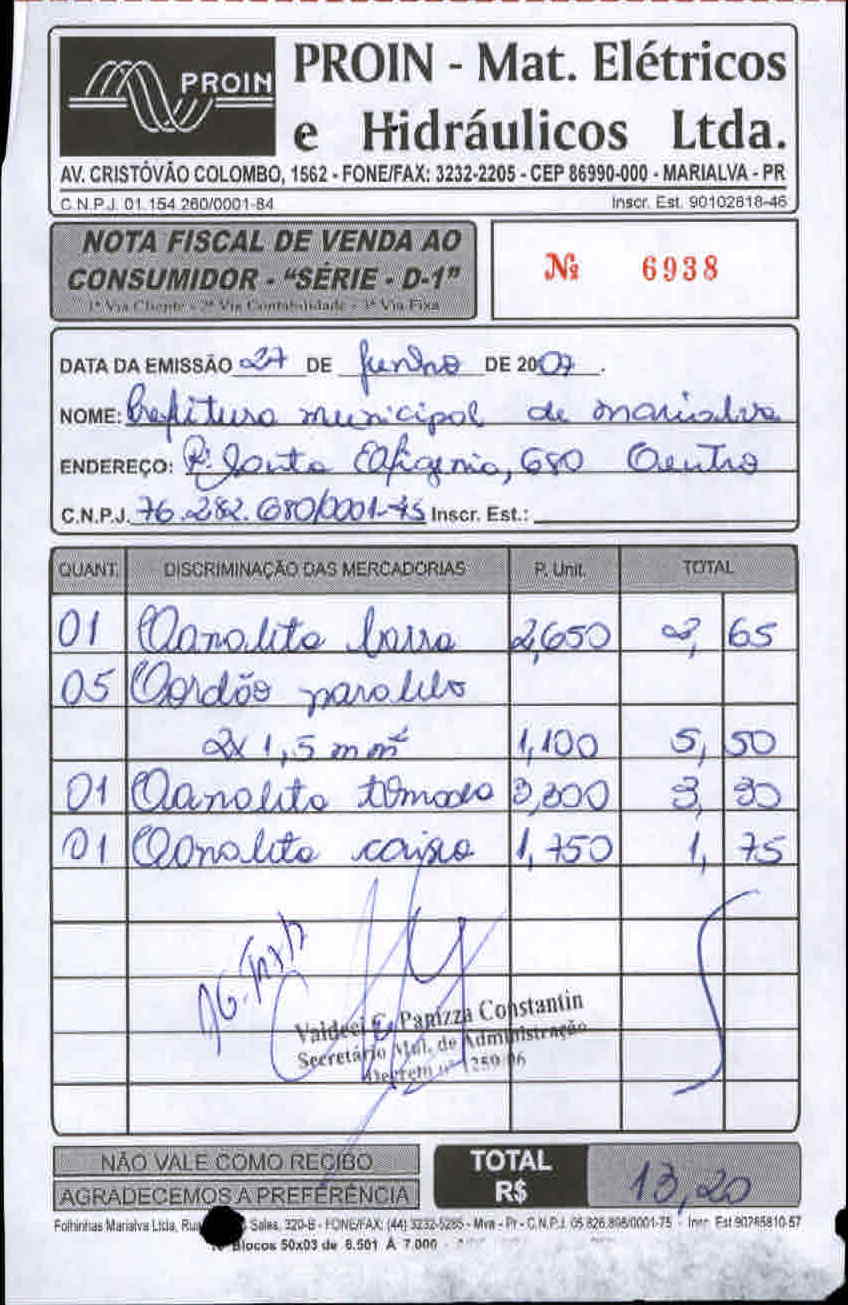 PROIN
PROIN - Mat. Elétricos
e Hidráulicos Ltda.
AV. CRISTÓVÃO COLOMBO, 1562 - FONE/FAX: 3232-2205 - CEP 86990-000 - MARIALVA - PR
C.N.P.J. 01.154.260/0001-84 Inscr. Est. 90102818-46
NOTA FISCAL DE VENDA AO
CONSUMIDOR - "SÉRIE - D-1"
1ª Via Cliente - 2ª Via Contabilidade - 3ª Via Fixa
Nº 6938
DATA DA EMISSÃO 27 DE Junho DE 2007.
NOME: Prefitura municipal de marialva
ENDEREÇO: R. Santa Efigenia, 680 Centro
C.N.P.J. 76.282.680/0001-45 Inscr. Est.:
QUANT. DISCRIMINAÇÃO DAS MERCADORIAS P. Unit. TOTAL
01 Canalita barra 2,650 2, 65
05 Cordão paralelo
2x 1,5 mm² 1,100 5, 50
01 Canalita tomada 3,300 3, 30
01 Canalita caixa 1,750 1, 75
Valdeci C. Panizza Constantin
Secretário Mul. de Administração
Decreto nº 1259/06
NÃO VALE COMO RECIBO
AGRADECEMOS A PREFERÊNCIA
TOTAL
R$ 13,20
Folhinhas Marialva Ltda, Rua Sales, 320-B - FONE/FAX: (44) 3232-5285 - Mva - Pr - C.N.P.J. 05.826.898/0001-75 - Inscr. Est 90285810-57
Blocos 50x03 de 6.501 Á 7.000